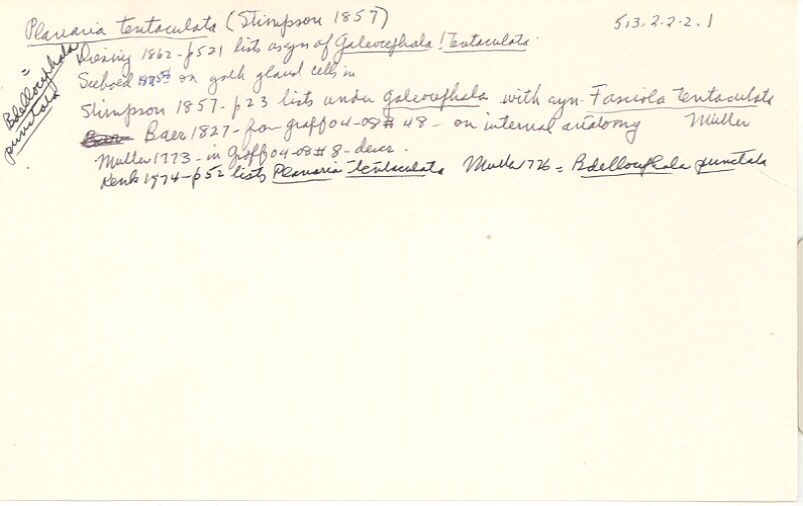 Planaria tentaculata (Stimpson 1857)
5,3.2.2.2.1
= Bdellocephala punctata
Diesing 1862-p521 lists as syn of Galeocephala ! Tentaculata.
Siebold on yolk gland cells in
Stimpson 1857-p23 lists under Galeocephala with syn. Fasciola tentaculata Müller
Baer 1827-from graff 04-08 #48-on internal anatomy
Muller 1773-in Graff 04-08 #8-descr.
Kenk 1974-p52 lists Planaria tentaculata Muller 1776 = Bdellocephala punctata